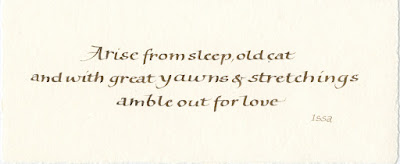 Arise from sleep, old cat
and with great yawns & stretchings
amble out for love
Issa